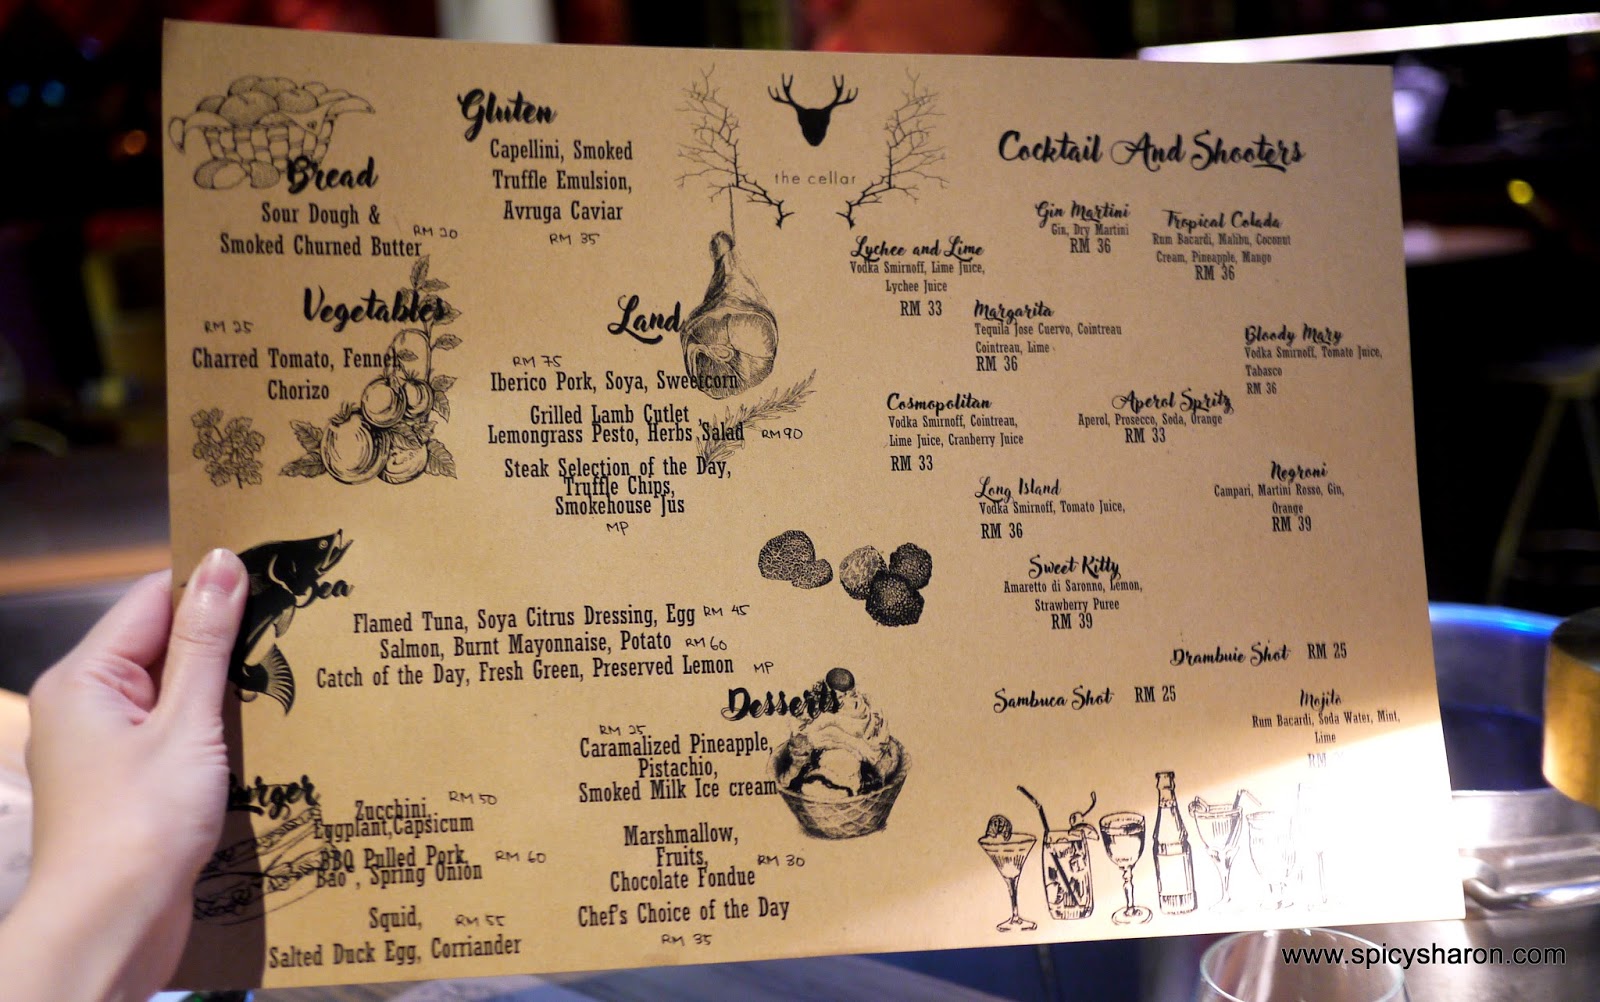 Bread
Sour Dough &
Smoked Churned Butter
RM 20
Gluten
Capellini, Smoked
Truffle Emulsion,
Avruga Caviar
RM 35
the cellar
Vegetables
RM 25
Charred Tomato, Fennel
Chorizo
Land
RM 75
Iberico Pork, Soya, Sweetcorn
Grilled Lamb Cutlet ,
Lemongrass Pesto, Herbs Salad RM 90
Steak Selection of the Day,
Truffle Chips,
Smokehouse Jus
MP
Sea
Flamed Tuna, Soya Citrus Dressing, Egg RM 45
Salmon, Burnt Mayonnaise, Potato RM 60
Catch of the Day, Fresh Green, Preserved Lemon MP
Burger
Zucchini, RM 50
Eggplant,Capsicum
BBQ Pulled Pork, RM 60
Bao , Spring Onion
Squid, RM 55
Salted Duck Egg, Corriander
Desserts
RM 25
Caramalized Pineapple,
Pistachio,
Smoked Milk Ice cream
Marshmallow,
Fruits, RM 30
Chocolate Fondue
Chef's Choice of the Day
RM 35
Cocktail And Shooters
Gin Martini
Gin, Dry Martini
RM 36
Tropical Colada
Rum Bacardi, Malibu, Coconut
Cream, Pineapple, Mango
RM 36
Lychee and Lime
Vodka Smirnoff, Lime Juice,
Lychee Juice
RM 33
Margarita
Tequila Jose Cuervo, Cointreau
Cointreau, Lime
RM 36
Bloody Mary
Vodka Smirnoff, Tomato Juice,
Tabasco
RM 36
Cosmopolitan
Vodka Smirnoff, Cointreau,
Lime Juice, Cranberry Juice
RM 33
Aperol Spritz
Aperol, Prosecco, Soda, Orange
RM 33
Long Island
Vodka Smirnoff, Tomato Juice,
RM 36
Negroni
Campari, Martini Rosso, Gin,
Orange
RM 39
Sweet Kitty
Amaretto di Saronno, Lemon,
Strawberry Puree
RM 39
Drambuie Shot RM 25
Sambuca Shot RM 25
Mojito
Rum Bacardi, Soda Water, Mint,
Lime
RM
www.spicysharon.com